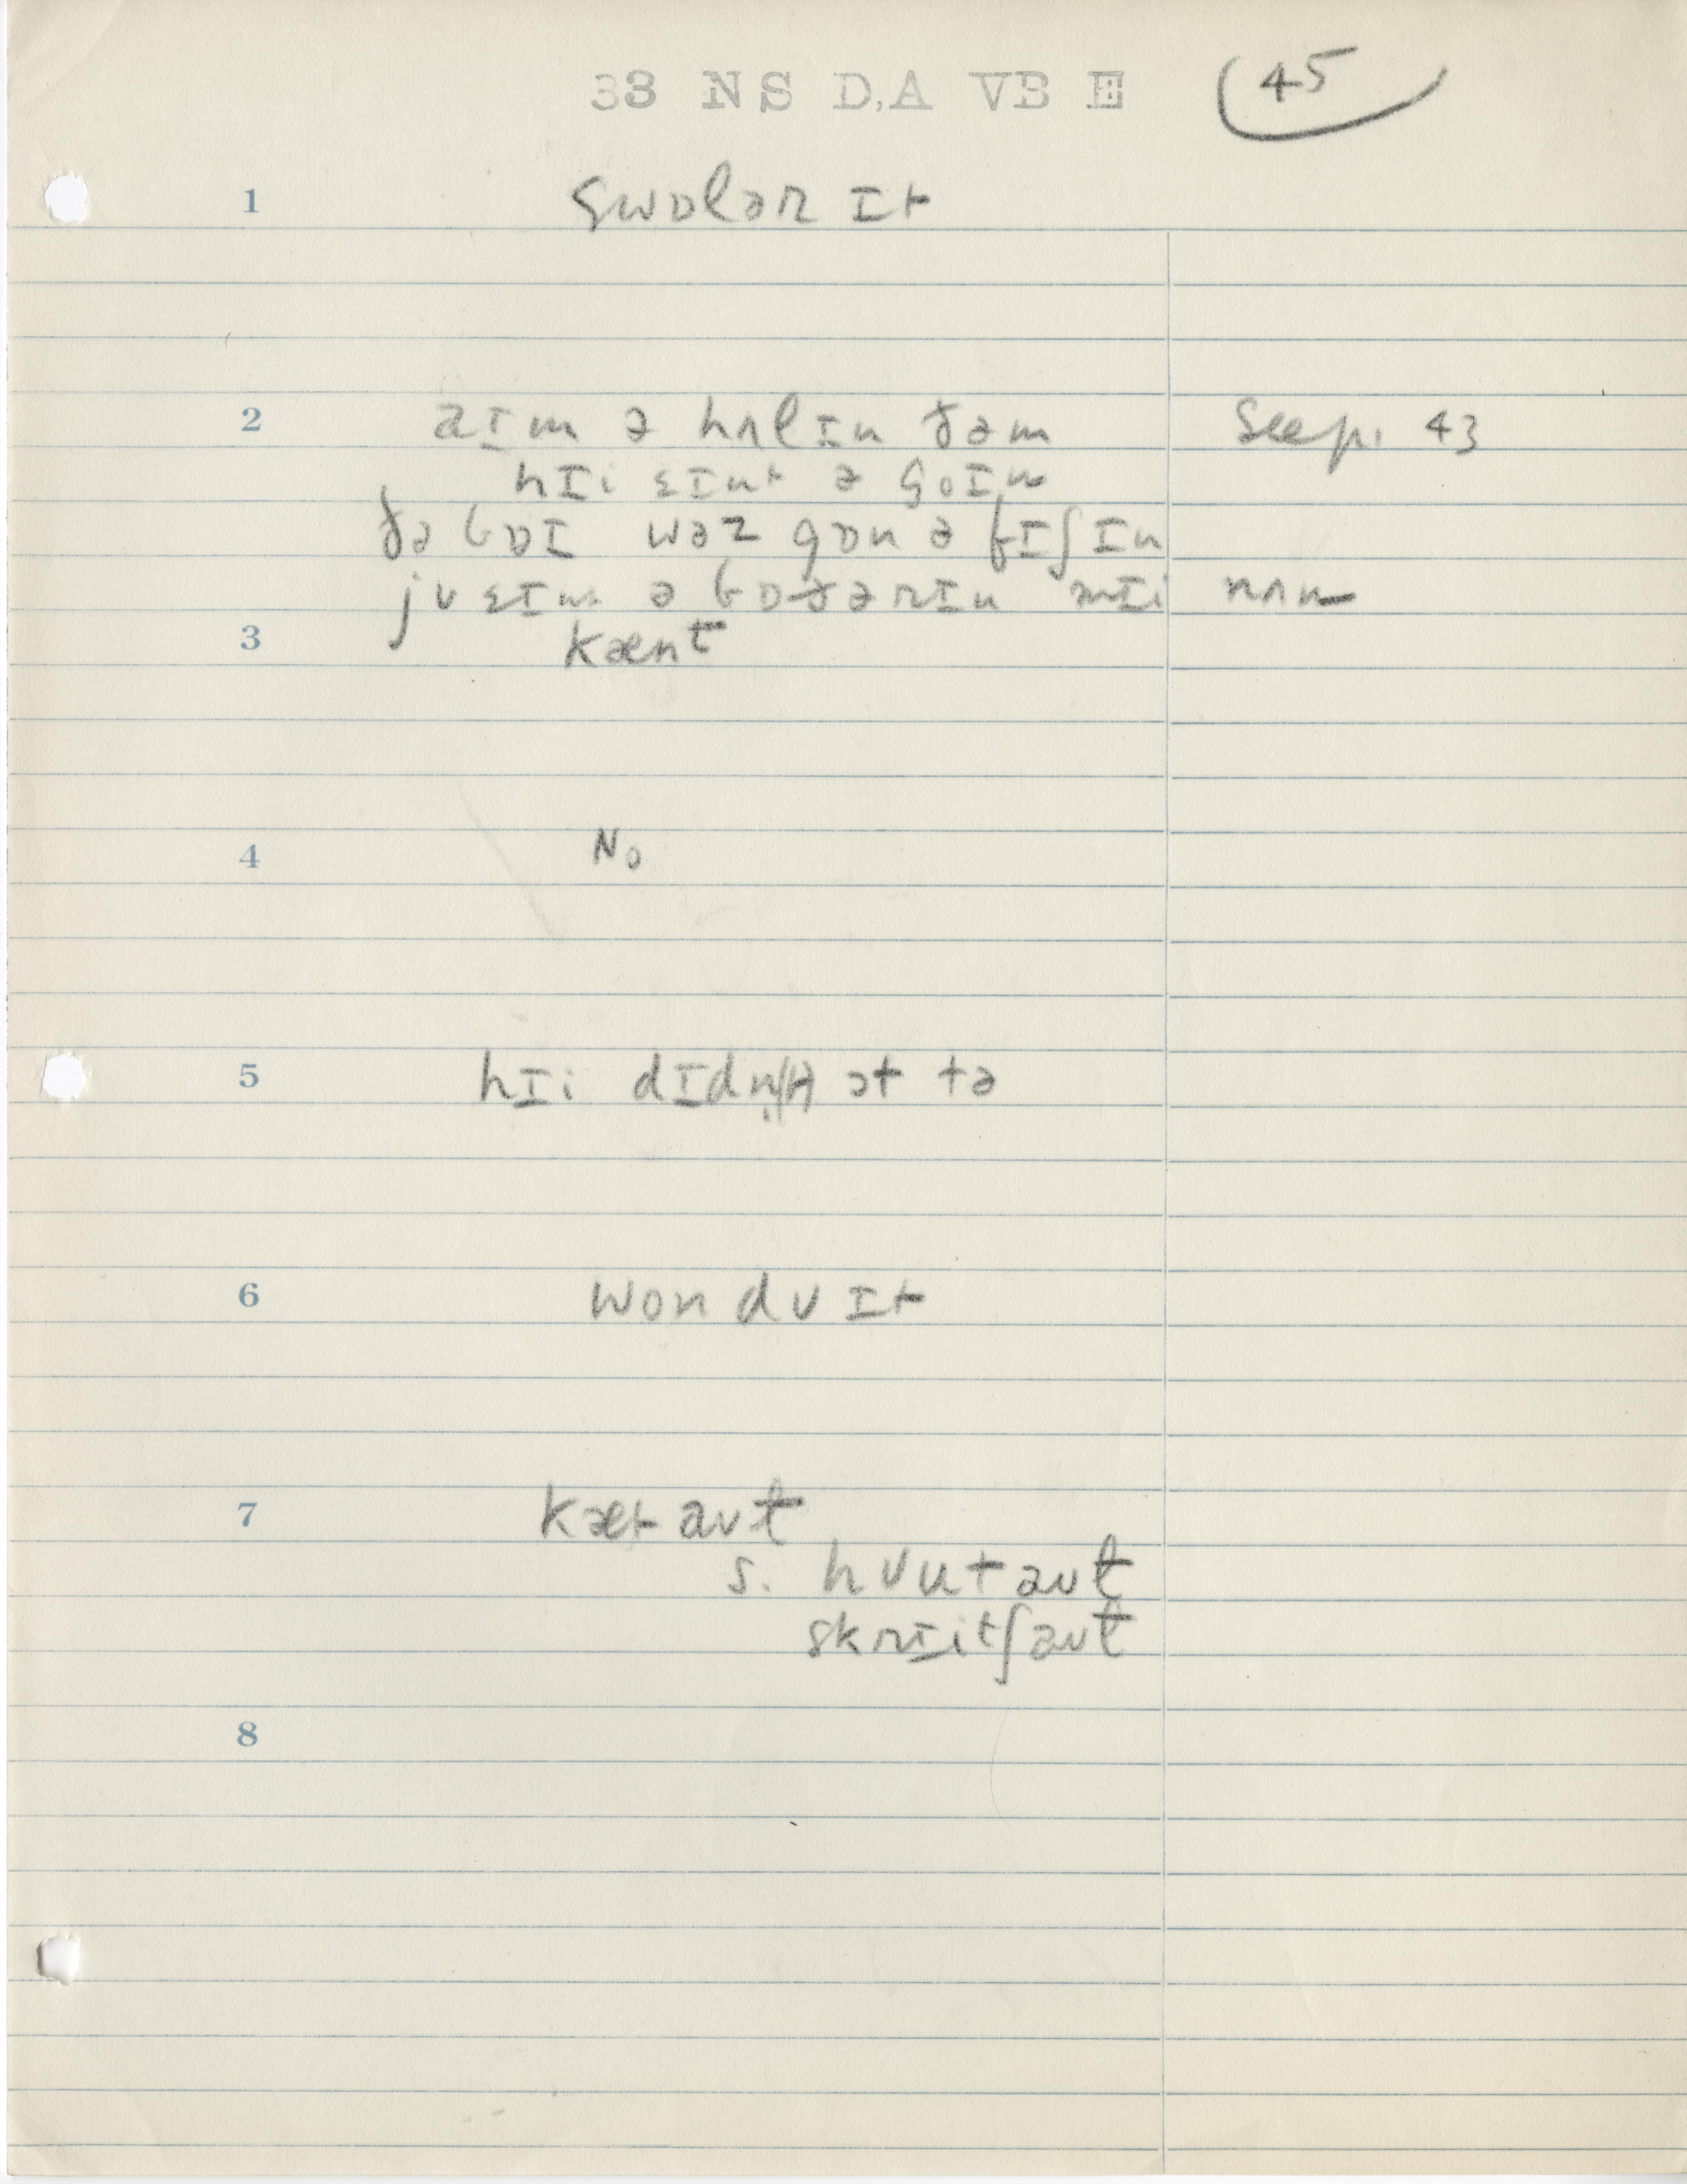 33 NS D,A VB E 45
1 swɒlər ɪt
2 aɪm ə hʌlɪn ðəm See p. 43
hɪi ɛɪnt ə goɪn
ðə bɒɪ wəz gɒn ə fɪʃɪn
jʊ ɛɪnt ə bɒðərɪn mɪi nʌn
3 kænt
4 No
5 hɪi dɪdn̩(t) ɔt tə
6 won dʊ ɪt
7 kæt aʊt
s. hʊkt aʊt
skrɪitʃ aʊt
8